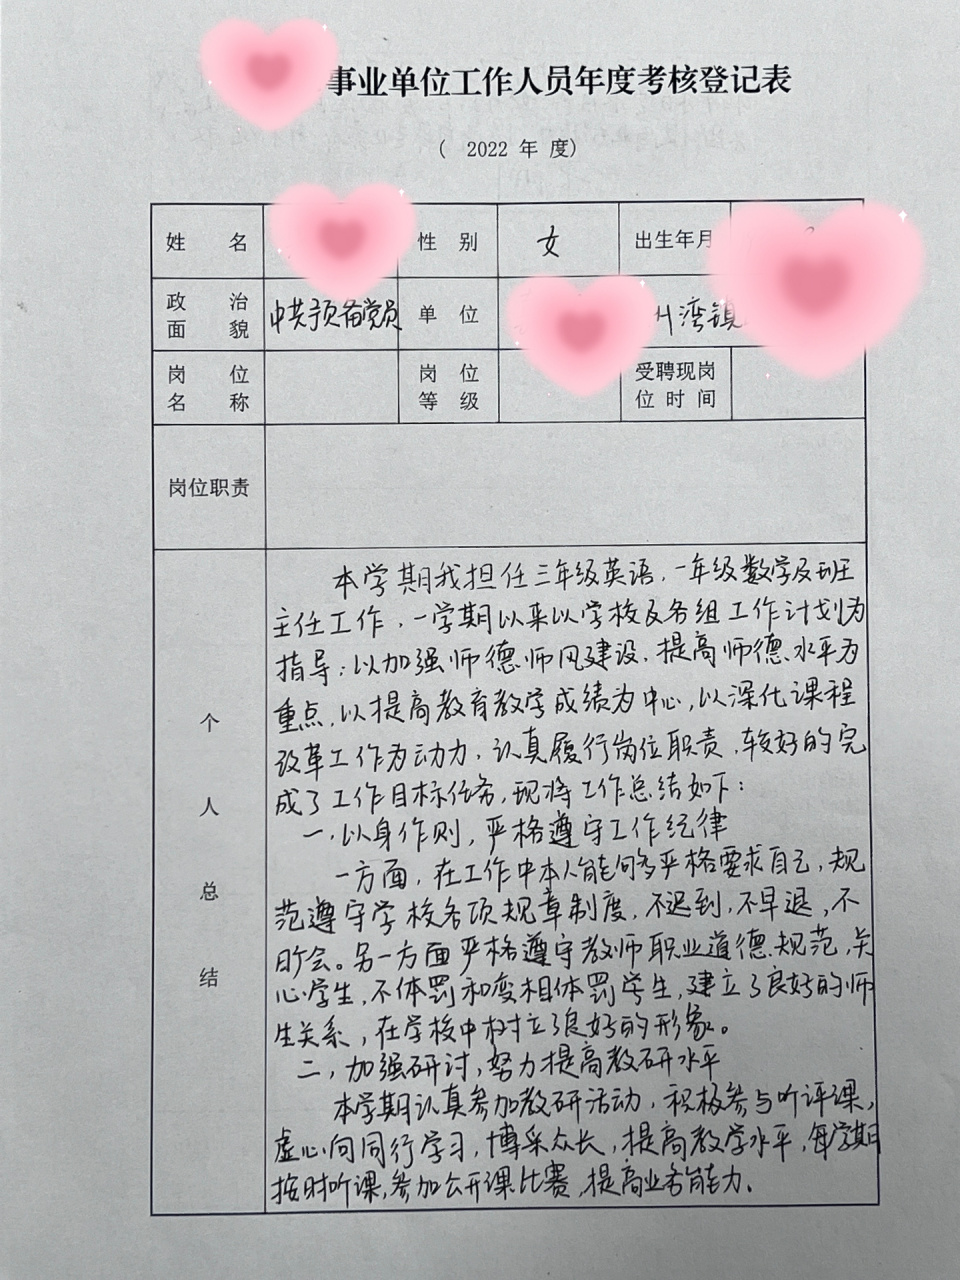 事业单位工作人员年度考核登记表
( 2022 年 度)
姓 名 性 别 女 出生年月
政 治 面 貌 中共预备党员 单 位 湾镇
岗 位 名 称 岗 位 等 级 受聘现岗位时间
岗位职责
个人总结
本学期我担任三年级英语，一年级数学及班
主任工作，一学期以来以学校及各组工作计划为
指导；以加强师德师风建设，提高师德水平为
重点，以提高教育教学成绩为中心，以深化课程
改革工作为动力，认真履行岗位职责，较好的完
成了工作目标任务，现将工作总结如下：
一，以身作则，严格遵守工作纪律
一方面，在工作中本人能够严格要求自己，规
范遵守学校各项规章制度，不迟到，不早退，不
旷会。另一方面严格遵守教师职业道德规范，关
心学生，不体罚和变相体罚学生，建立了良好的师
生关系，在学校中树立了良好的形象。
二，加强研讨，努力提高教研水平
本学期认真参加教研活动，积极参与听评课，
虚心向同行学习，博采众长，提高教学水平，每学期
按时听课，参加公开课比赛，提高业务能力。